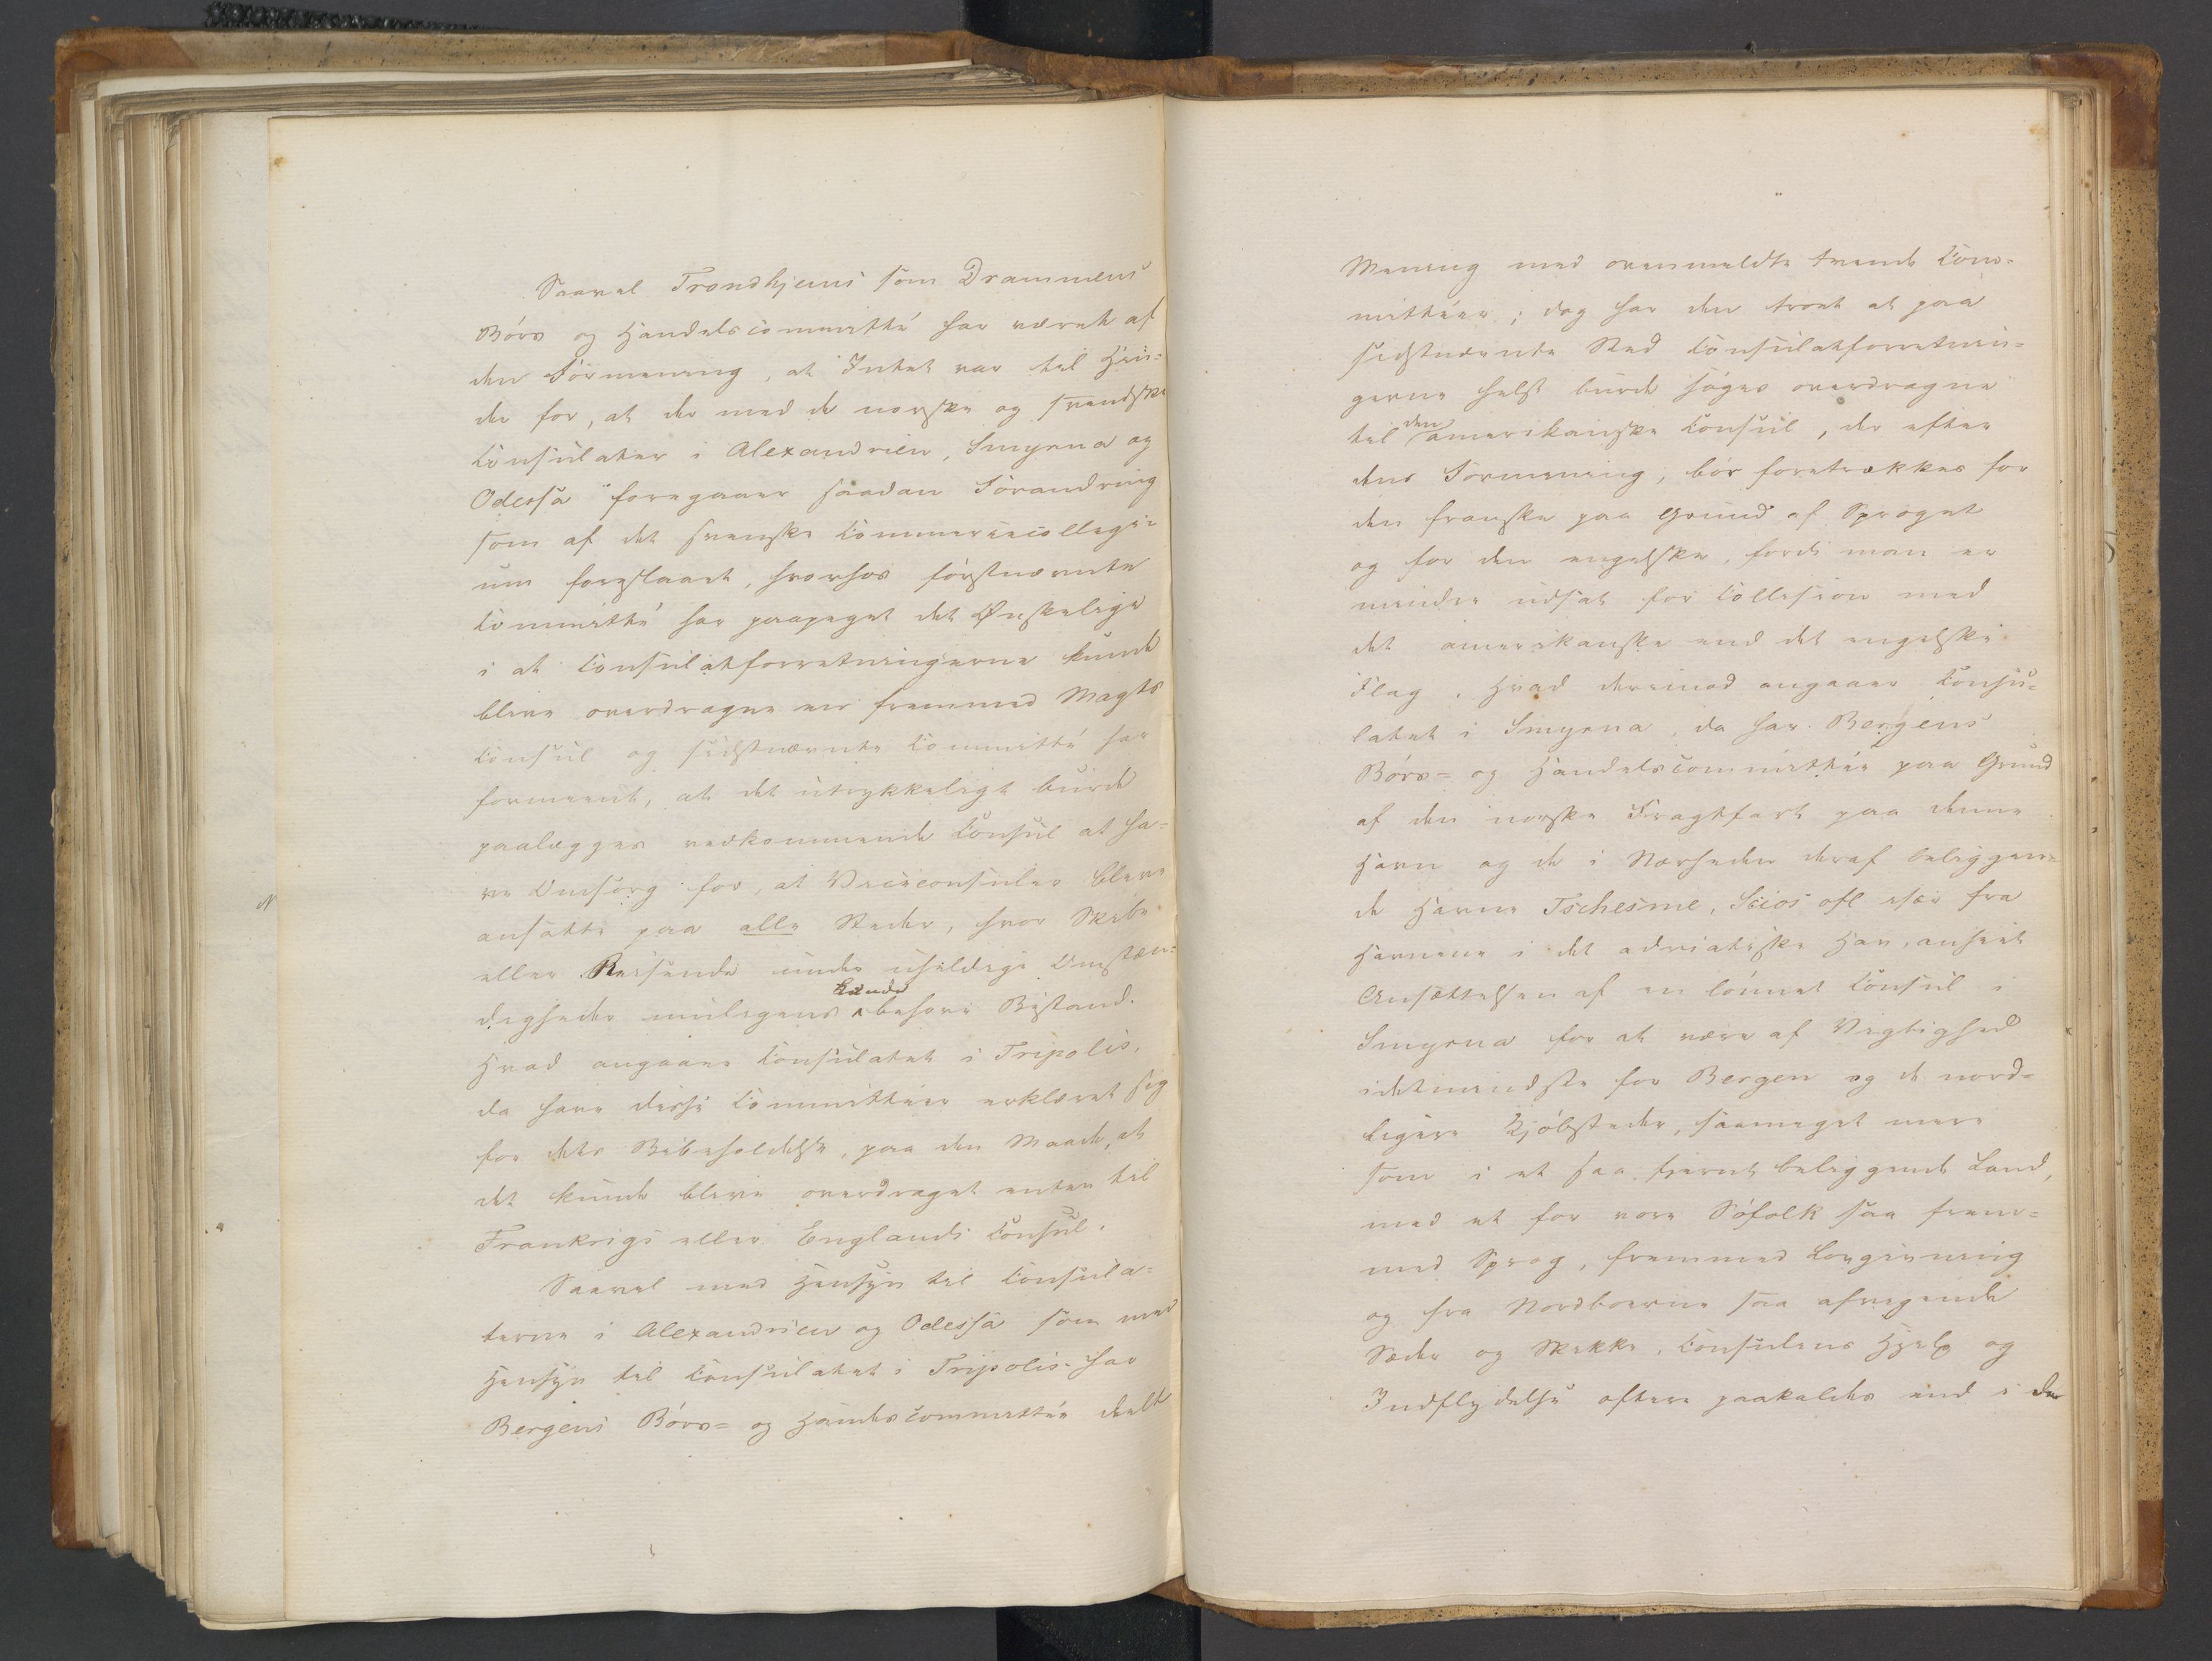 Saavel Trondhjems som Drammens
Börs og Handelscommitté har været af
den Formening, at Intet var til Hin-
der for, at der med de norske og svendske
Consulater i Alexandrien, Smyrna og
Odessa foregaaer saadan Forandring
som af det svenske Commercecollegi-
um foreslaaet, hvorhos förstnævnte
Committé har paapeget det Ønskelige
i at Consulatforretningerne kunde
blive overdragne en fremmed Magts
Consul og sidstnævnte Committé har
formeent, at det utrykkeligt burde
paalægges vedkommende Consul at ha-
ve Omsorg for, at Viceconsuler bleve
ansatte paa alle Steder, hvor Skibe
eller Reisende under uheldige Omstæn-
digheder muligens kunde behøve Bistand.
Hvad angaaer Consulatet i Tripolis,
da have disse Committéer erklæret sig
for dets Bibeholdelse, paa den Maade, at
det kunde blive overdraget enten til
Frankrigs eller Englands Consul.
Saavel med Hensyn til Consula-
terne i Alexandrien og Odessa som med
Hensyn til Consulatet i Tripolis har
Bergens Börs- og Handelscommittée deelt
Mening med ovenmeldte tvende Com-
mittéer; dog har den troet at paa
sidstnævnte Sted Consulatforretnin-
gerne helst burde søges overdragne
til den amerikanske Consul, der efter
dens Formening, bör foretrækkes for
den franske paa Grund af Sproget
og for den engelske, fordi man er
mindre udsat for Collision med
det amerikanske end det engelske
Flag. Hvad derimod angaaer Consu-
latet i Smyrna, da har Bergens
Börs- og Handelscommittée paa Grund
af den norske Fragtfart paa denne
Havn og de i Nærheden deraf beliggen-
de Havne Tschesme, Scios ofl især fra
Havnene i det adriatiske Hav, anseet
Ansættelsen af en lönnet Consul i
Smyrna for at være af Vigtighed
idetmindste for Bergen og de nord-
ligere Kjöbsteder, saameget mere
som i et saa fjernt beliggende Land,
med et for vore Söfolk saa frem-
med Sprog, fremmed Lovgivning
og fra Nordboerne saa afvigende
Sæder og Skikke, Consulens Hjelp og
Indflydelse oftere paakaldes end i de